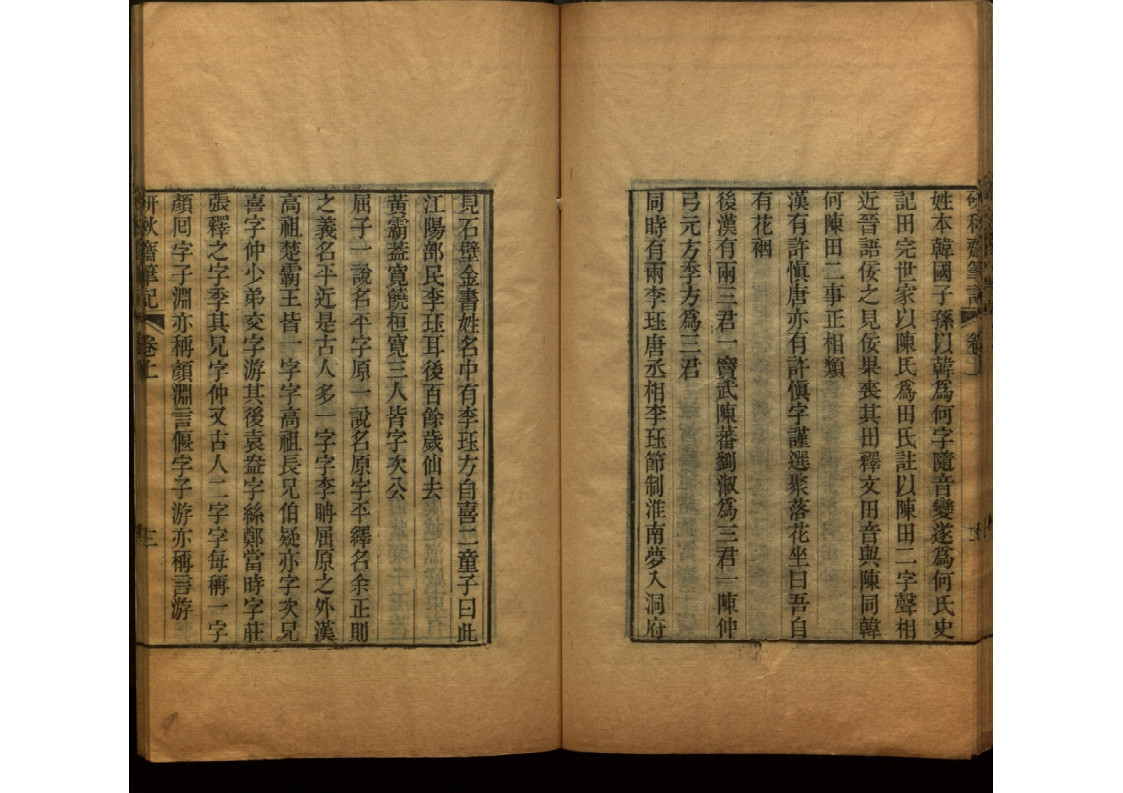 姓本韓國子孫以韓爲何字隨音變遂爲何氏史
記田完世家以陳氏爲田氏註以陳田二字聲相
近晉語佞之見佞果喪其田釋文田音與陳同韓
何陳田二事正相類
漢有許慎唐亦有許慎字謹選聚落花坐曰吾自
有花裀
後漢有兩三君一竇武陳蕃劉淑爲三君一陳仲
弓元方季方爲三君
同時有兩李珏唐丞相李珏節制淮南夢入洞府
見石壁金書姓名中有李珏方自喜二童子曰此
江陽部民李珏耳後百餘歲仙去
黃霸蓋寬饒桓寬三人皆字次公
屈子一說名平字原一說名原字平繹名余正則
之義名平近是古人多一字字李聃屈原之外漢
高祖楚霸王皆一字字高祖長兄伯疑亦字次兄
喜字仲少弟交字游其後袁盎字絲鄭當時字莊
張釋之字季其兄字仲又古人二字字每稱一字
顏回字子淵亦稱顏淵言偃字子游亦稱言游
研秋齋筆記
卷上
三